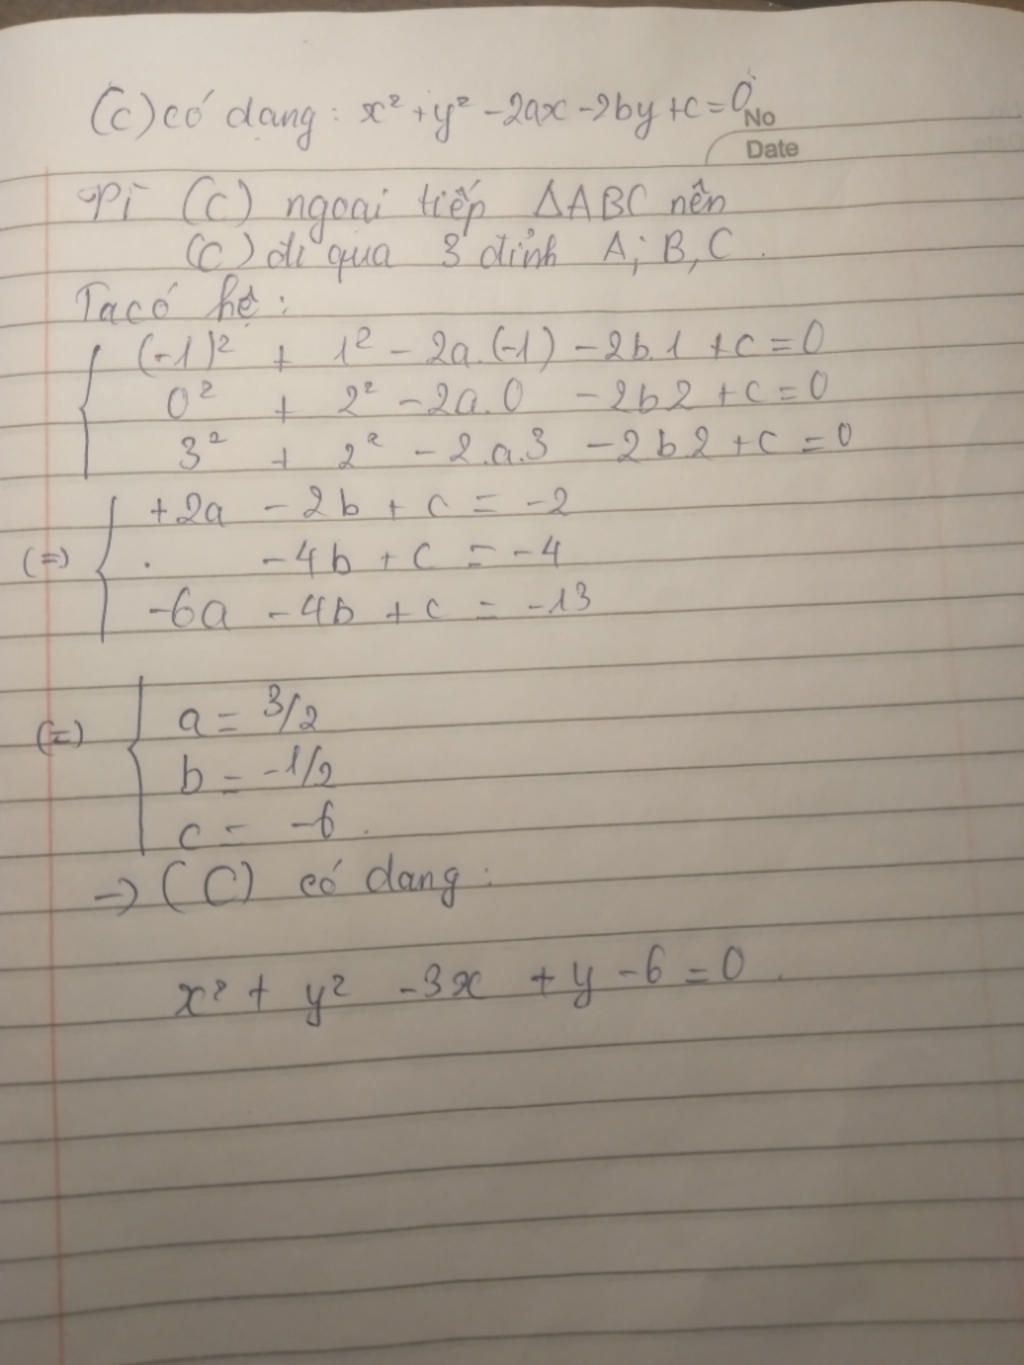 (C) có dạng: x² + y² - 2ax - 2by + c = 0
No
Date
Vì (C) ngoại tiếp ΔABC nên
(C) đi qua 3 đỉnh A; B, C.
Ta có hệ:
(-1)² + 1² - 2a.(-1) - 2b.1 + c = 0
0² + 2² - 2a.0 - 2b2 + c = 0
3² + 2² - 2.a.3 - 2b.2 + c = 0
+2a - 2b + c = -2
(=) . -4b + c = -4
-6a - 4b + c = -13
a = 3/2
(=) b = -1/2
c = -6.
→ (C) có dạng:
x² + y² - 3x + y - 6 = 0.